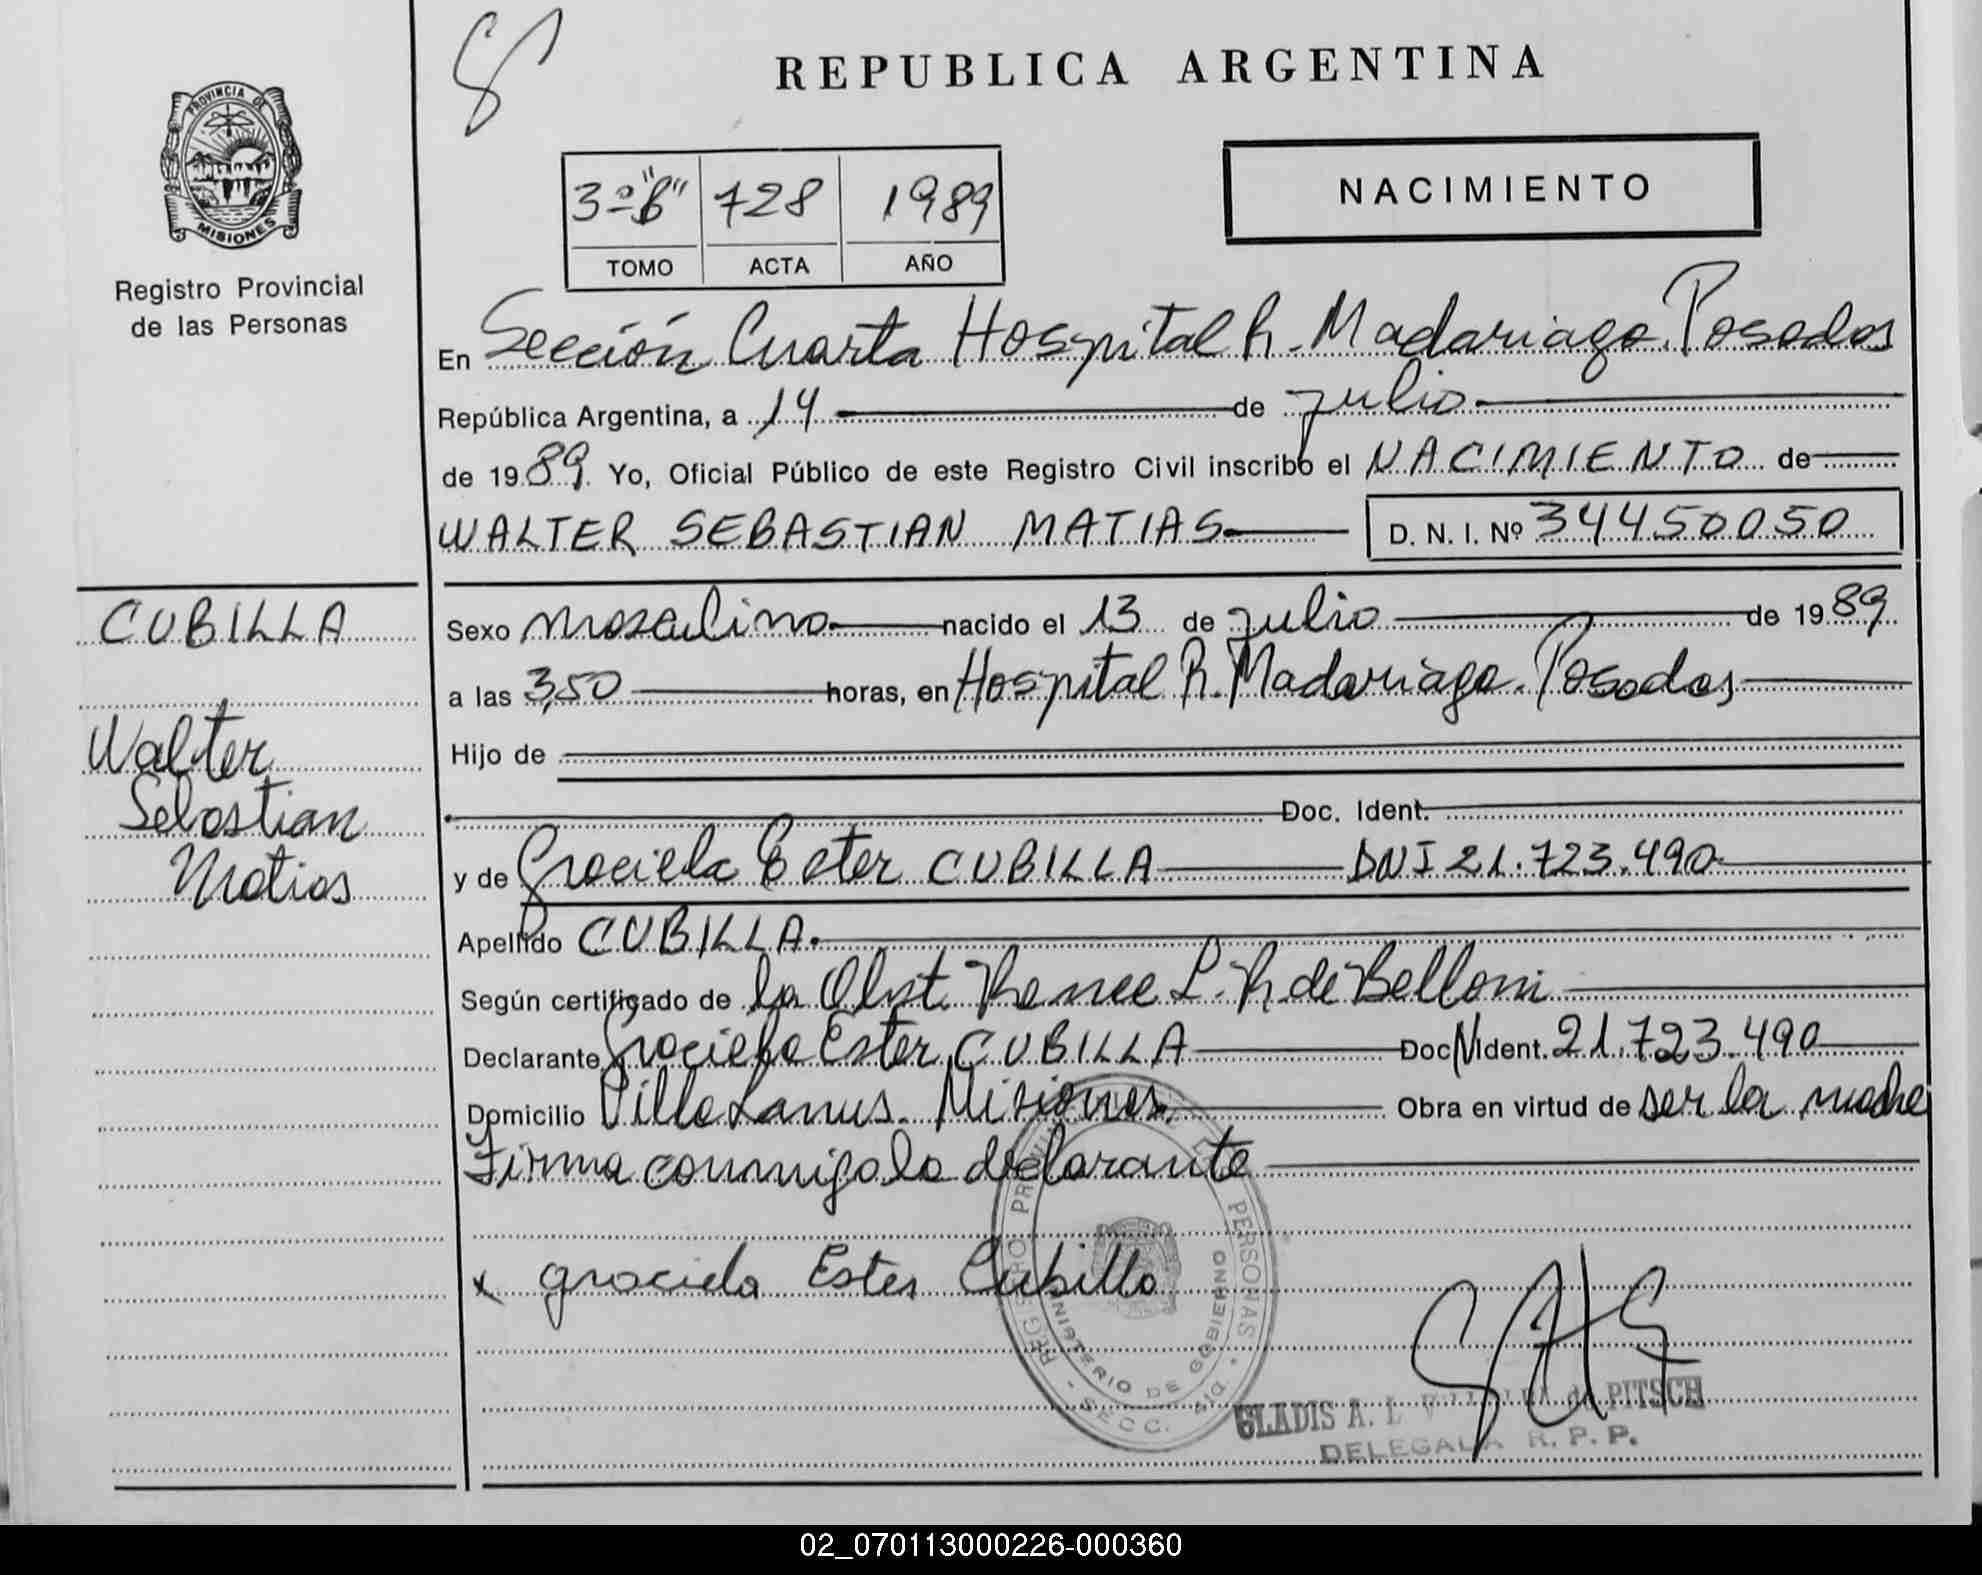 PROVINCIA DE
MISIONES
Registro Provincial
de las Personas
REPUBLICA ARGENTINA
3º "B" 728 1989
TOMO ACTA AÑO
NACIMIENTO
En Sección Cuarta Hospital R. Madariaga. Posadas
República Argentina, a 14 de julio
de 1989 Yo, Oficial Público de este Registro Civil inscribo el NACIMIENTO de
WALTER SEBASTIAN MATIAS D. N. I. Nº 34450050
CUBILLA
Walter
Sebastian
Matias
Sexo masculino nacido el 13 de julio de 1989
a las 3,50 horas, en Hospital R. Madariaga. Posadas
Hijo de
Doc. Ident.
y de Graciela Ester CUBILLA DNI 21.723.490
Apellido CUBILLA.
Según certificado de la Obst. Renee L. R. de Belloni
Declarante Graciela Ester CUBILLA Doc. Ident. 21.723.490
Domicilio Villa Lanus. Misiones. Obra en virtud de ser la madre
Firma conmigo la declarante
x graciela Ester Cubilla
REGISTRO PERSONAS
MINISTERIO DE GOBIERNO
SECC. 4ta.
GLADIS A. L. de PITSCH
DELEGADA R. P. P.
02_070113000226-000360